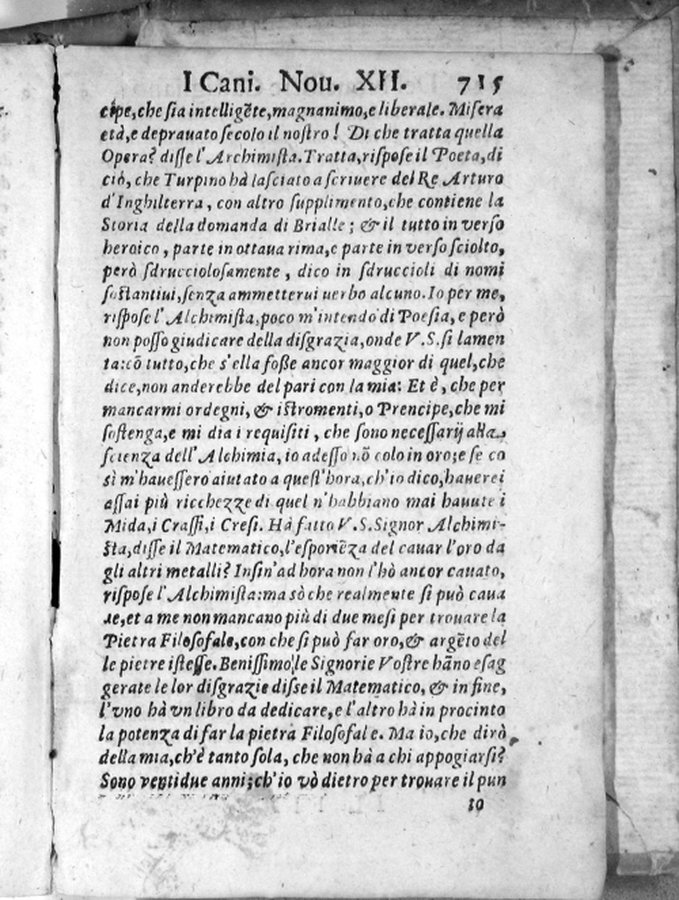 I Cani. Nou. XII. 715
cipe, che sia intelligẽte, magnanimo, e liberale. Misera
età, e deprauato secolo il nostro! Di che tratta quella
Opera? disse l'Archimista. Tratta, rispose il Poeta, di
ciò, che Turpino hà lasciato a scriuere del Re Arturo
d'Inghilterra, con altro supplimento, che contiene la
Storia della domanda di Brialle; & il tutto in verso
heroico, parte in ottaua rima, e parte in verso sciolto,
però sdrucciolosamente, dico in sdruccioli di nomi
sostantiui, senza ammetterui uerbo alcuno. Io per me,
rispose l'Alchimista, poco m'intendo di Poesia, e però
non posso giudicare della disgrazia, onde V.S. si lamen
ta: cõ tutto, che s'ella fosse ancor maggior di quel, che
dice, non anderebbe del pari con la mia: Et è, che per
mancarmi ordegni, & istromenti, o Prencipe, che mi
sostenga, e mi dia i requisiti, che sono necessarij alla
scienza dell'Alchimia, io adesso nõ colo in oro; e se co
sì m'hauessero aiutato a quest'hora, ch'io dico, hauerei
assai più ricchezze di quel n'habbiano mai hauute i
Mida, i Crassi, i Cresi. Hà fatto V.S. Signor Alchimi-
sta, disse il Matematico, l'esporiẽza del cauar l'oro da
gli altri metalli? Insin'ad hora non l'hò ancor cauato,
rispose l'Alchimista: ma sò che realmente si può caua
re, et a me non mancano più di due mesi per trouare la
Pietra Filosofale, con che si può far oro, & argẽto del
le pietre istesse. Benissimo le Signorie Vostre hãno esag
gerate le lor disgrazie disse il Matematico, & in fine,
l'vno hà vn libro da dedicare, e l'altro hà in procinto
la potenza di far la pietra Filosofale. Ma io, che dirò
della mia, ch'è tanto sola, che non hà a chi appogiarsi?
Sono ventidue anni; ch'io vò dietro per trouare il pun
to